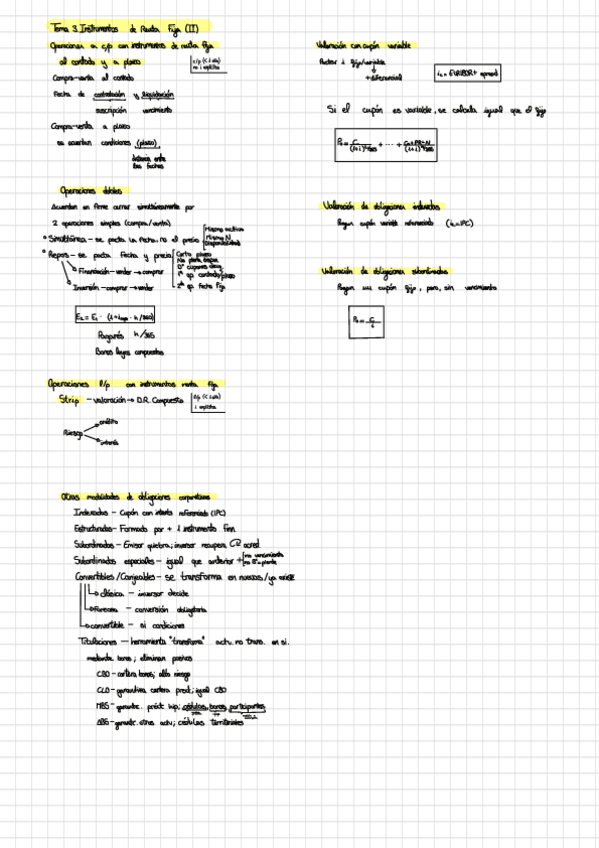 Tema 3. Instrumentos de Renta Fija (II)
Operaciones a c/p con instrumentos de renta fija
al contado y a plazo
c/p (< 1 año)
no i explícito
Compra-venta al contado
Fecha de contratación y liquidación
suscripción vencimiento
Compra-venta a plazo
se acuerdan condiciones (plazo)
distancia entre
las fechas
Operaciones dobles
Acuerdan en firme cerrar simultáneamente por
2 operaciones simples (compra/venta)
• Simultánea - se pacta la fecha, no el precio
Mismo activo
Mismo N
Disponibilidad
• Repos - se pacta fecha y precio
Corto plazo
Financiación - vender → comprar
Inversión - comprar → vender
1ª op. contado/plazo
2ª op. fecha fija
Pagarés n/365
Bonos leyes compuestas
Operaciones l/p con instrumentos renta fija
Strip - valoración → D.R. Compuesto
i explícito
Riesgo
crédito
interés
Otras modalidades de obligaciones corporativas
Indexadas - Cupón con interés referenciado (IPC)
Estructurados - Formado por + 1 instrumento finan
Subordinados - Emisor quiebra; inversor recupera acred.
Subordinados especiales - igual que anterior +
no vencimiento
Convertibles/Canjeables - se transforma en nuevas/ya existe
clásica - inversor decide
Forzosa - conversión obligatoria
convertible - si condiciones
Titulaciones - herramienta "transforma" activ. no trans. en si.
mediante bonos; eliminan pasivos
CBO - cartera bonos; alto riesgo
CLO - garantiza cartera prest; igual CBO
MBS - garantiz. prést hip; cédulas, bonos, participantes
ABS - garantiz. otros activ; cédulas territoriales
Valoración con cupón variable
Factor i fijo/variable
+ diferencial
i₂ = EURIBOR + spread
Si el cupón es variable, se calcula igual que el fijo
Valoración de obligaciones indexadas
Pagan cupón variable referenciado (i=IPC)
Valoración de obligaciones subordinadas
Pagan un cupón fijo, pero, sin vencimiento
P₀ = C/i